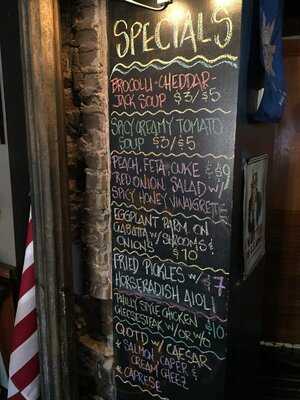 SPECIALS
BROCOLLI-CHEDDAR-
JACK SOUP $3/$5
SPICY CREAMY TOMATO
SOUP $3/$5
PEACH, FETA, CUKE & $9
RED ONION SALAD W/
SPICY HONEY VINAIGRETTE
EGGPLANT PARM ON
CIABATTA W/ SHROOMS &
ONIONS $10
FRIED PICKLES W/ $7
HORSERADISH AIOLI
PHILLY STYLE CHICKEN $10
CHEESESTEAK W/ OR W/O
QOTD W/ CAESAR
& SALMON, CAPER &
CREAM CHEEZ
& CAPRESE